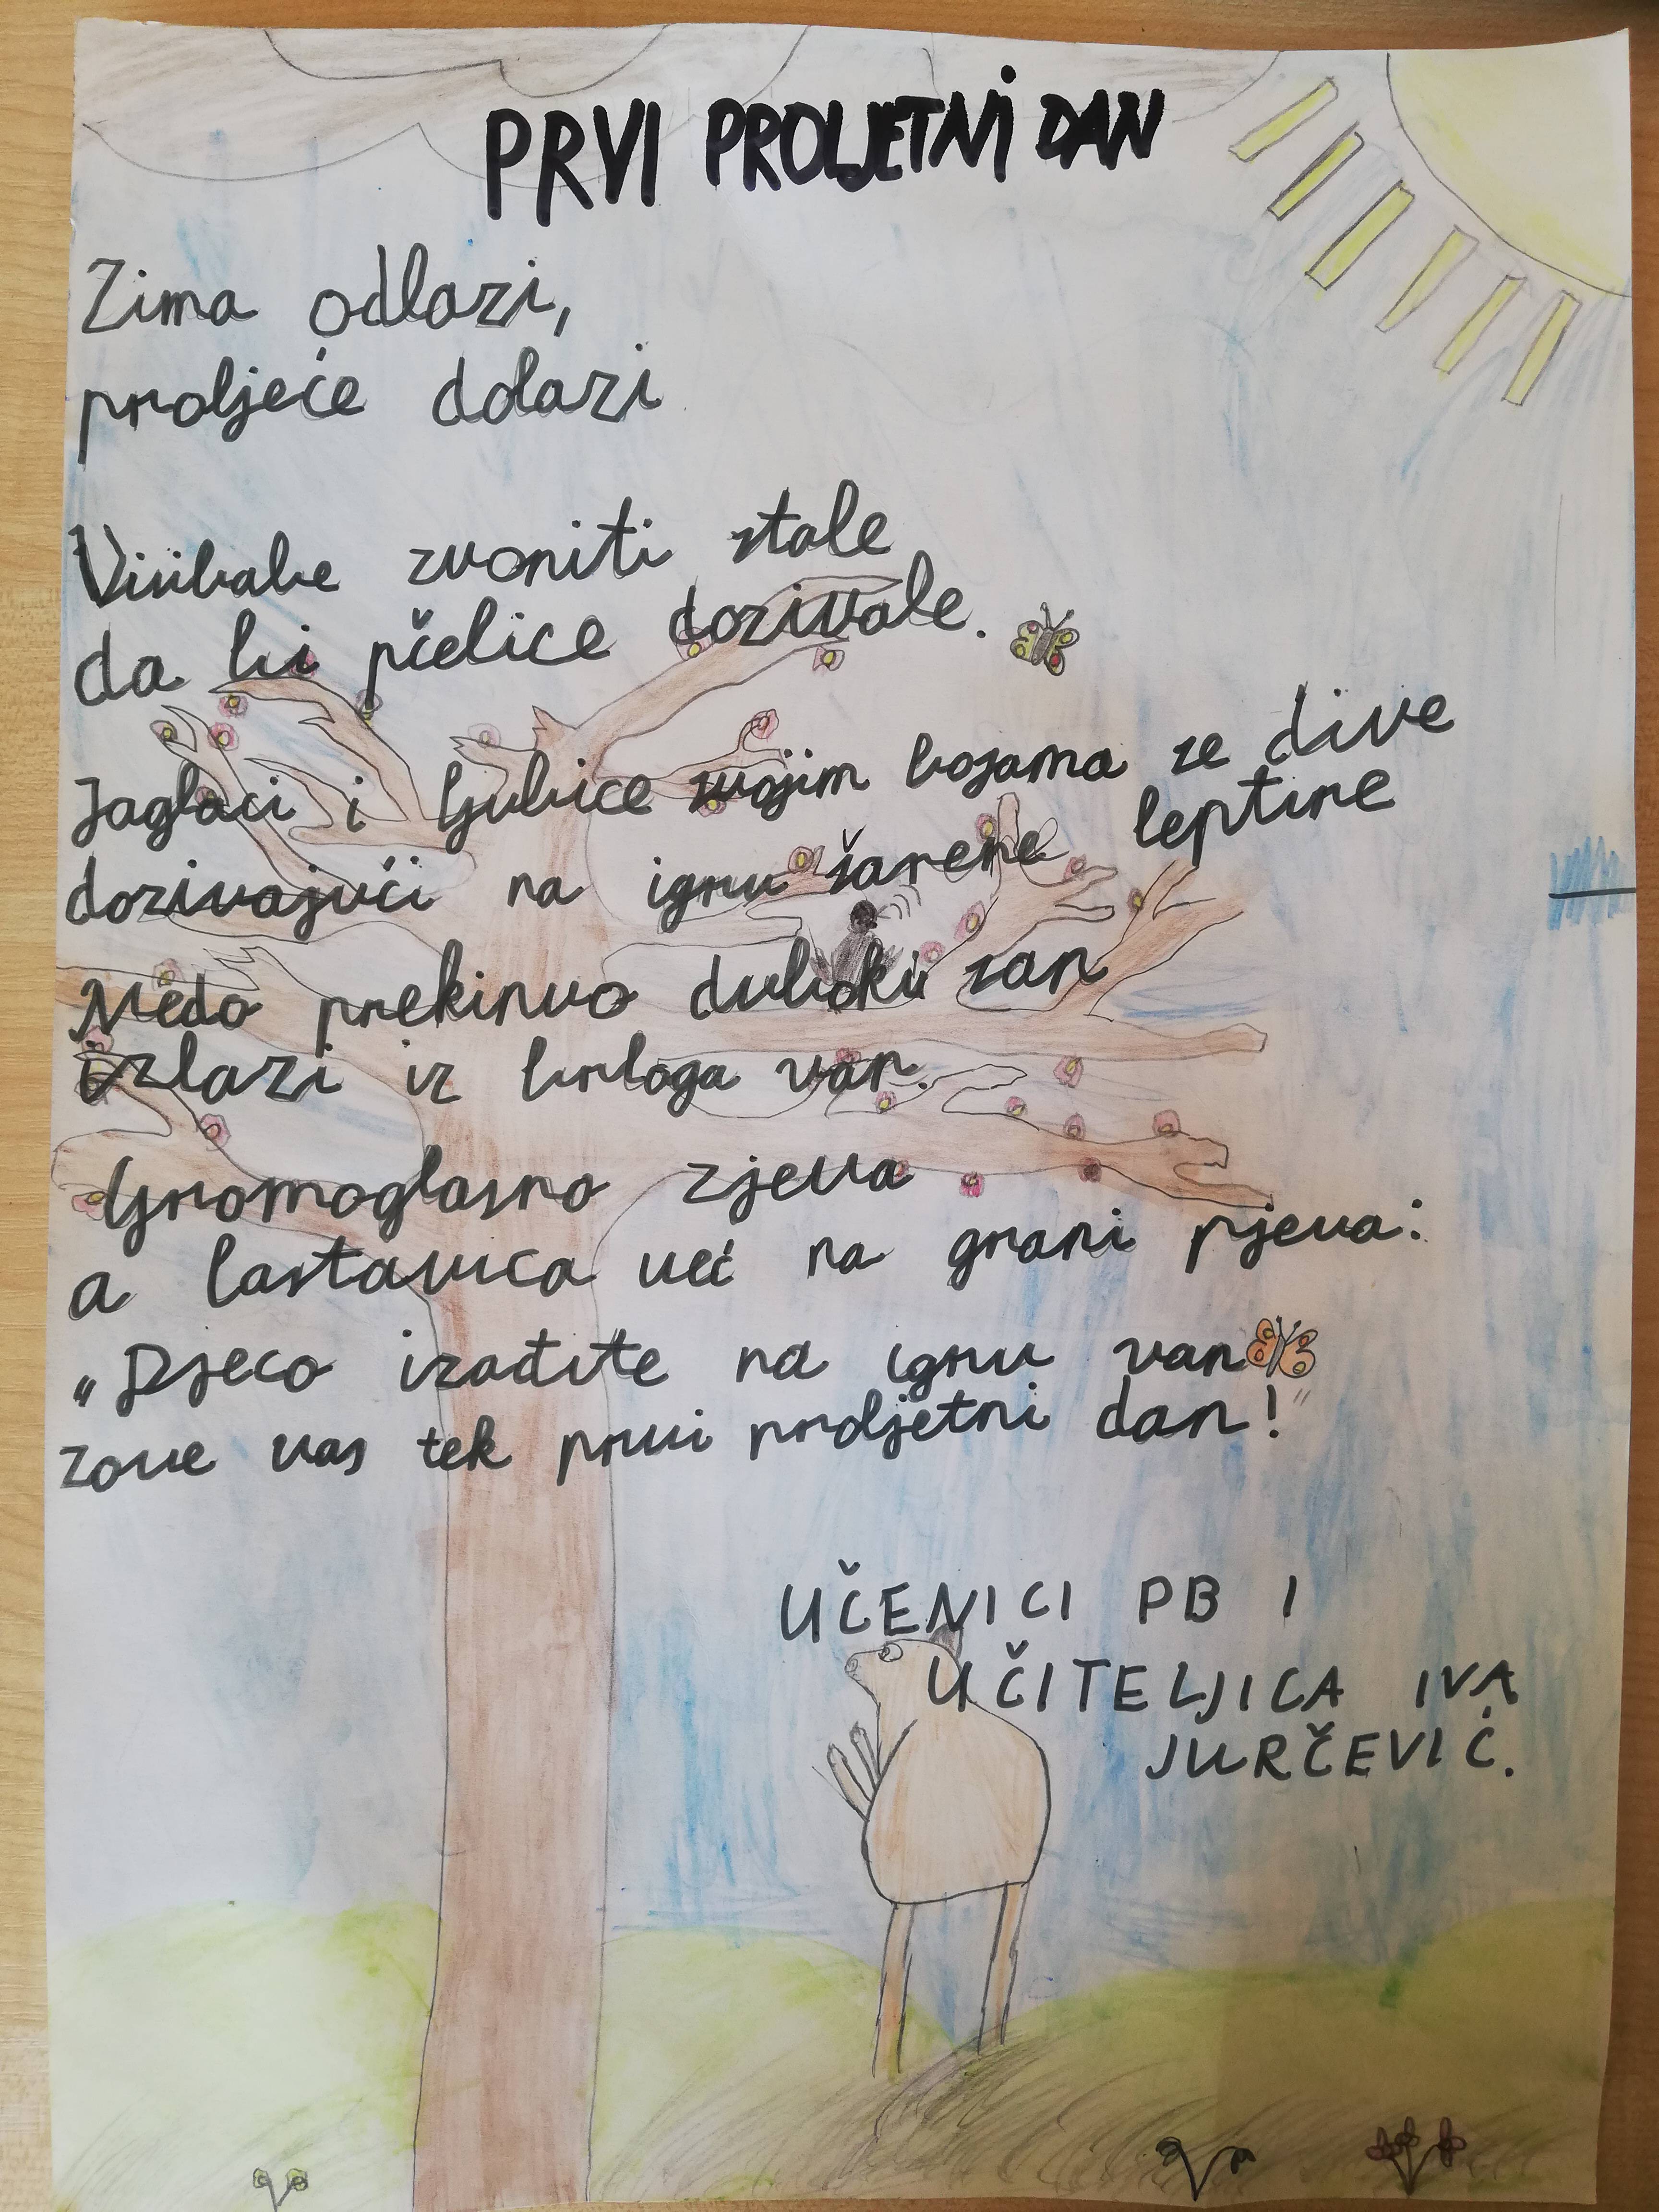 PRVI PROLJETNI DAN
Zima odlazi,
proljeće dolazi
Visibabe zvoniti stale
da bi pčelice dozivale.
Jaglaci i ljubice svojim bojama se dive
dozivajući na igru šarene leptire
Medo prekinuo duboki san
izlazi iz brloga van.
Gromoglasno zjeva
a lastavica već na grani pjeva:
"Djeco izađite na igru van
zove vas tek prvi proljetni dan!"
UČENICI PB I
UČITELJICA IVA
JURČEVIĆ.